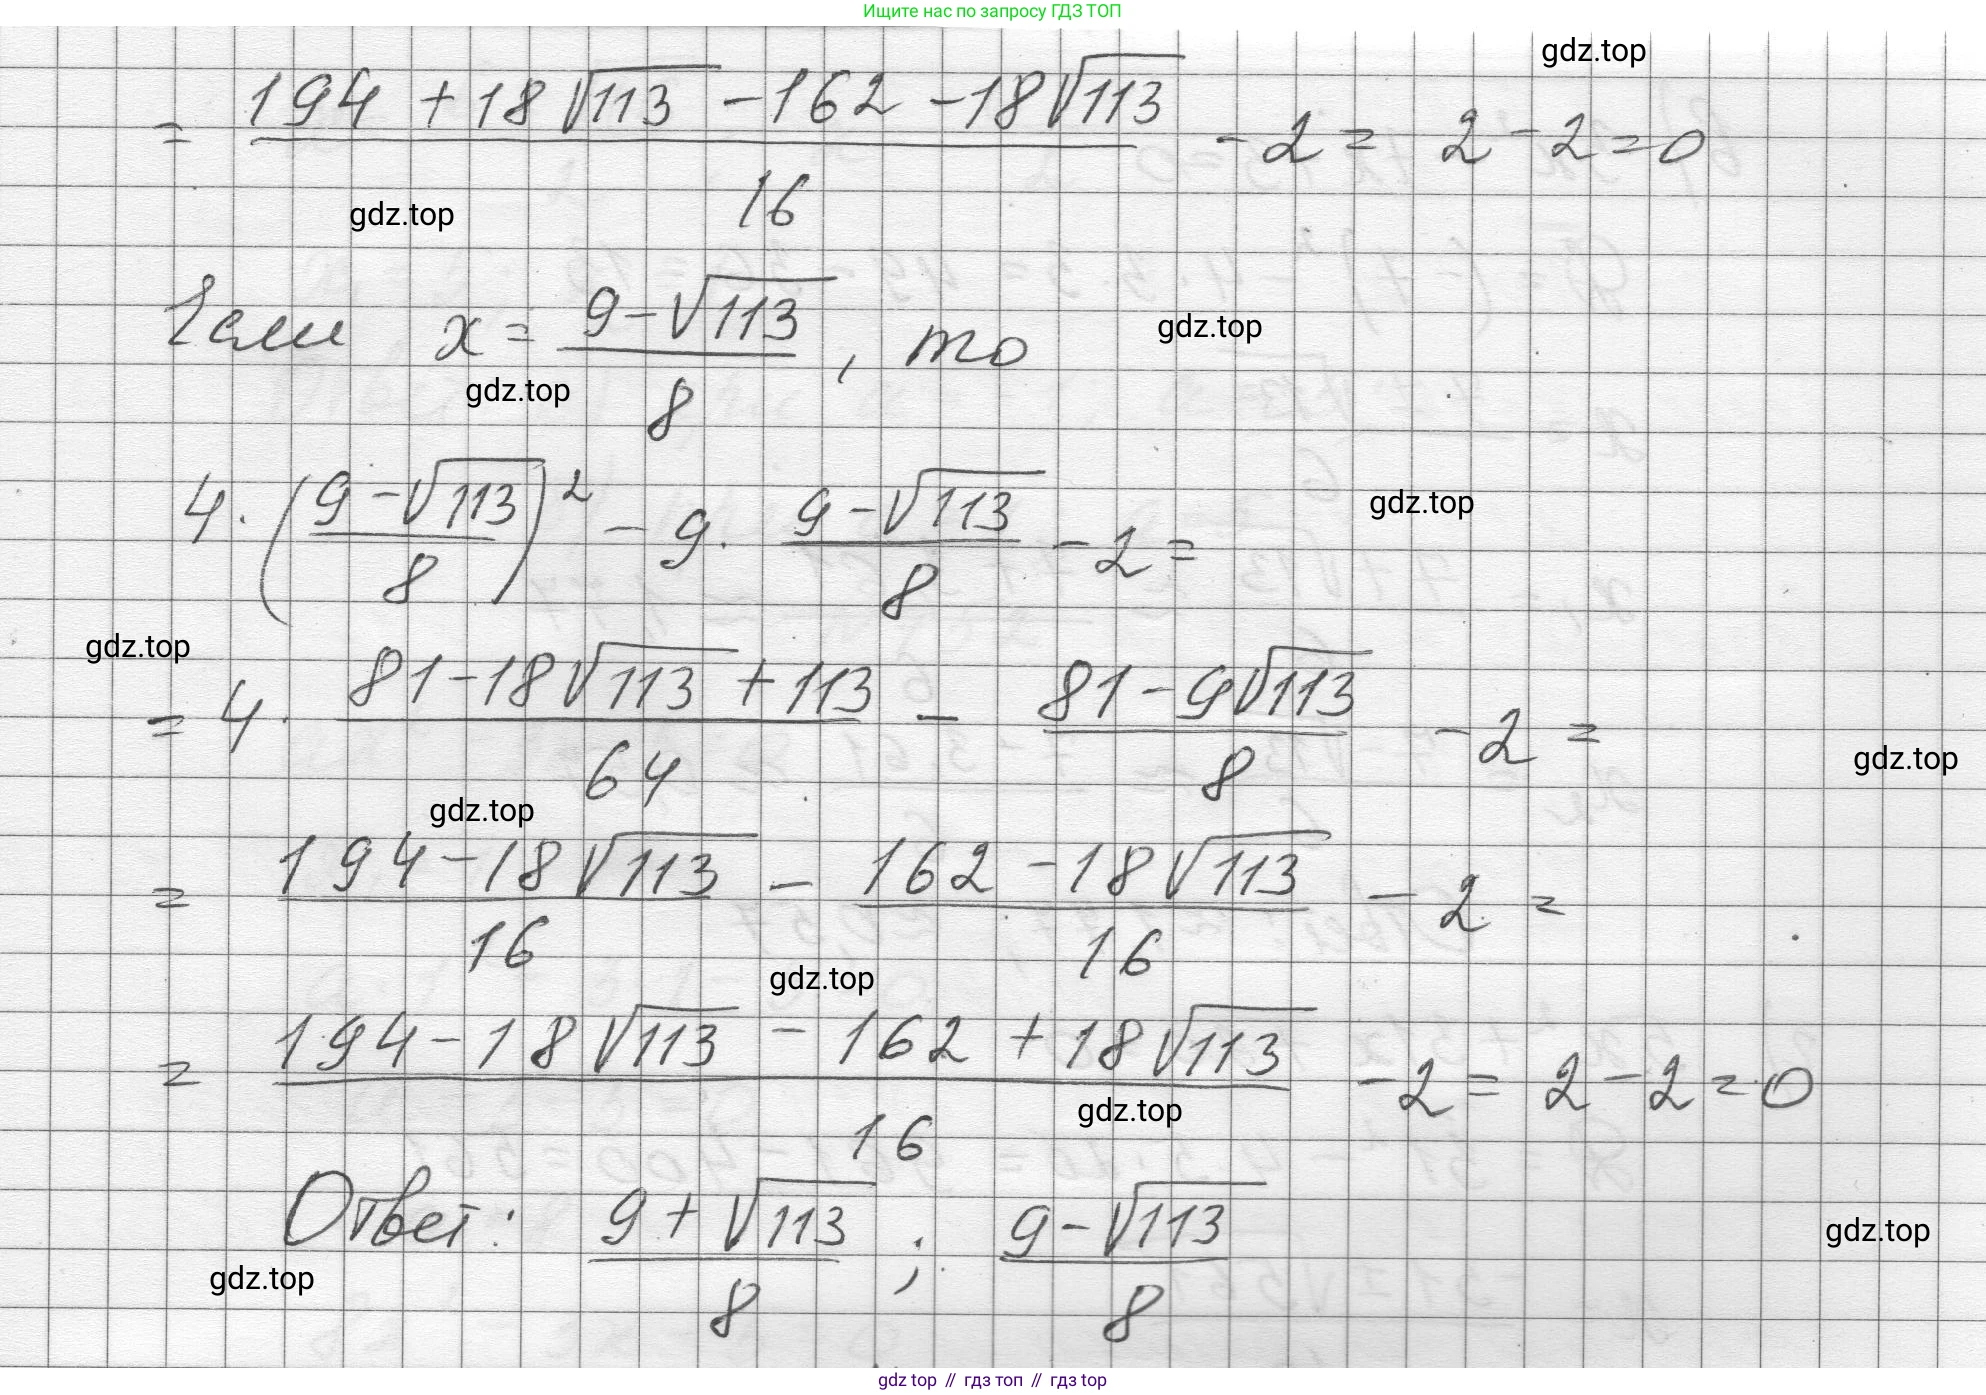 Ищите нас по запросу ГДЗ ТОП
gdz.top
= (194 + 18√113 - 162 - 18√113)/16 - 2 = 2 - 2 = 0
gdz.top
Если x = (9 - √113)/8, то
gdz.top
gdz.top
4 · ((9 - √113)/8)² - 9 · (9 - √113)/8 - 2 =
gdz.top
gdz.top
= 4 · (81 - 18√113 + 113)/64 - (81 - 9√113)/8 - 2 =
gdz.top
gdz.top
= (194 - 18√113)/16 - (162 - 18√113)/16 - 2 =
gdz.top
= (194 - 18√113 - 162 + 18√113)/16 - 2 = 2 - 2 = 0
gdz.top
Ответ: (9 + √113)/8 ; (9 - √113)/8
gdz.top
gdz.top
gdz top // гдз топ // gdz top